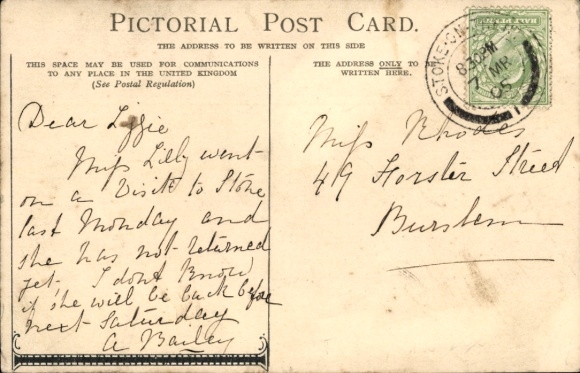 PICTORIAL POST CARD.
THE ADDRESS TO BE WRITTEN ON THIS SIDE
THIS SPACE MAY BE USED FOR COMMUNICATIONS
TO ANY PLACE IN THE UNITED KINGDOM
(See Postal Regulation)
THE ADDRESS ONLY TO BE
WRITTEN HERE.
STOKE-ON
8.30PM
MR
05
HALFPENNY
Dear Lizzie
Miss Lilly went
on a visit to Stone
last Monday and
she has not returned
yet. I dont know
if she will be back before
next Saturday
A Bailey
Miss Rhodes
49 Forster Street
Burslem